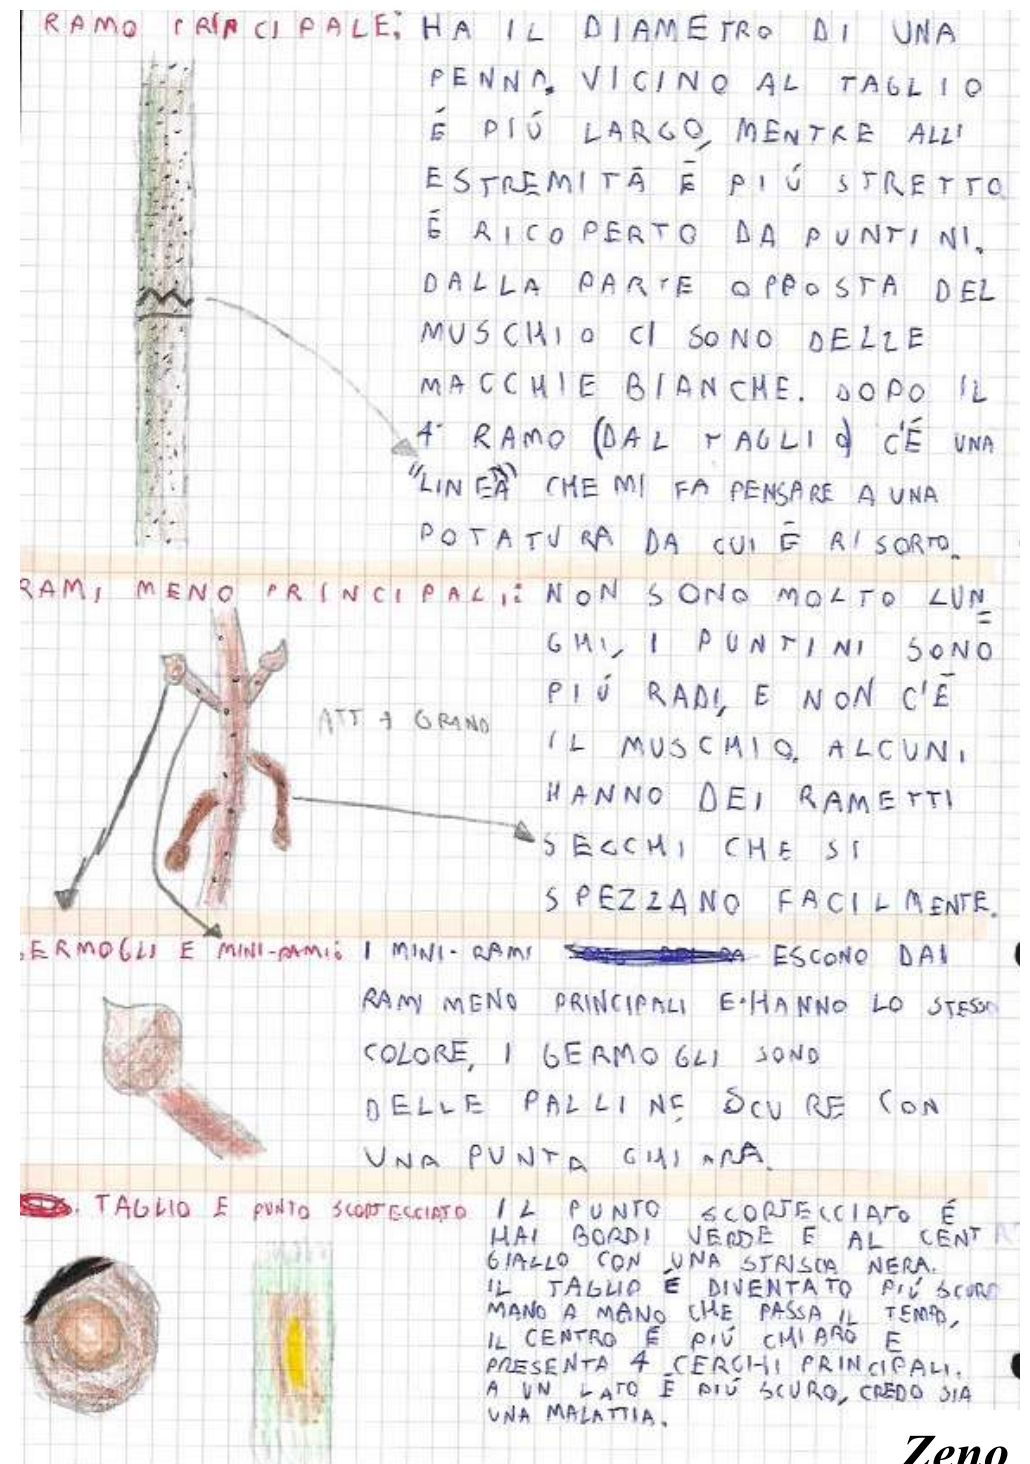 RAMO PRINCIPALE: HA IL DIAMETRO DI UNA
PENNA, VICINO AL TAGLIO
É PIÚ LARGO, MENTRE ALL'
ESTREMITÀ É PIÚ STRETTO
É RICOPERTO DA PUNTINI.
DALLA PARTE OPPOSTA DEL
MUSCHIO CI SONO DELLE
MACCHIE BIANCHE. DOPO IL
4° RAMO (DAL TAGLIO) C'É UNA
"LINEA" CHE MI FA PENSARE A UNA
POTATURA DA CUI É RISORTO.
RAMI MENO PRINCIPALI: NON SONO MOLTO LUN
GHI, I PUNTINI SONO
PIÚ RADI, E NON C'É
IL MUSCHIO. ALCUNI
HANNO DEI RAMETTI
SECCHI CHE SI
SPEZZANO FACILMENTE.
ATT. A GRAND
GERMOGLI E MINI-RAMI: I MINI-RAMI ESCONO DAI
RAMI MENO PRINCIPALI E HANNO LO STESSO
COLORE, I GERMOGLI SONO
DELLE PALLINE SCURE CON
UNA PUNTA CHIARA.
TAGLIO E PUNTO SCORTECCIATO IL PUNTO SCORTECCIATO É
HAI BORDI VERDE E AL CENT
GIALLO CON UNA STRISCIA NERA.
IL TAGLIO É DIVENTATO PIÚ SCURO
MANO A MANO CHE PASSA IL TEMPO,
IL CENTRO É PIÚ CHIARO E
PRESENTA 4 CERCHI PRINCIPALI.
A UN LATO É PIÚ SCURO, CREDO SIA
UNA MALATTIA.
Zeno